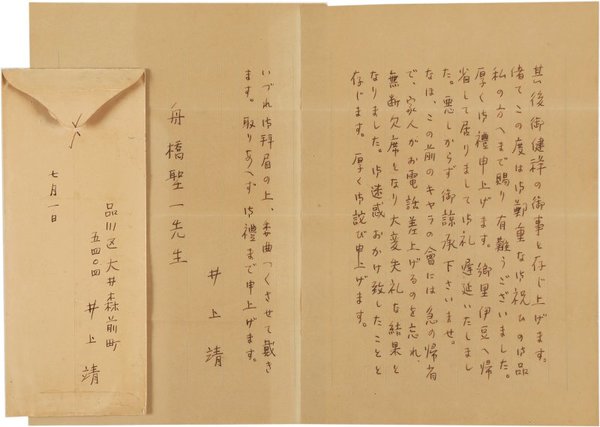 其後御健祥の御事と存じ上げます。
偖てこの度は御鄭重な御祝ひの御品
私の方へまで賜り有難うございました。
厚く御禮申上げます。郷里伊豆へ帰
省して居りまして御礼遅延いたしまし
た。悪しからず御諒承下さいませ。
なほ、この前のキヤラの會には急の帰省
で、家人がお電話差上げるのを忘れ、
無断欠席となり大変失礼な結果と
なりました。御迷惑おかけ致したことと
存じます。厚く御詫び申上げます。
いづれ御拝眉の上、委曲つくさせて戴き
ます。取りあへず御禮まで申上げます。
井上靖
舟橋聖一先生
品川区大井森前町
五四〇四
井上靖
七月一日